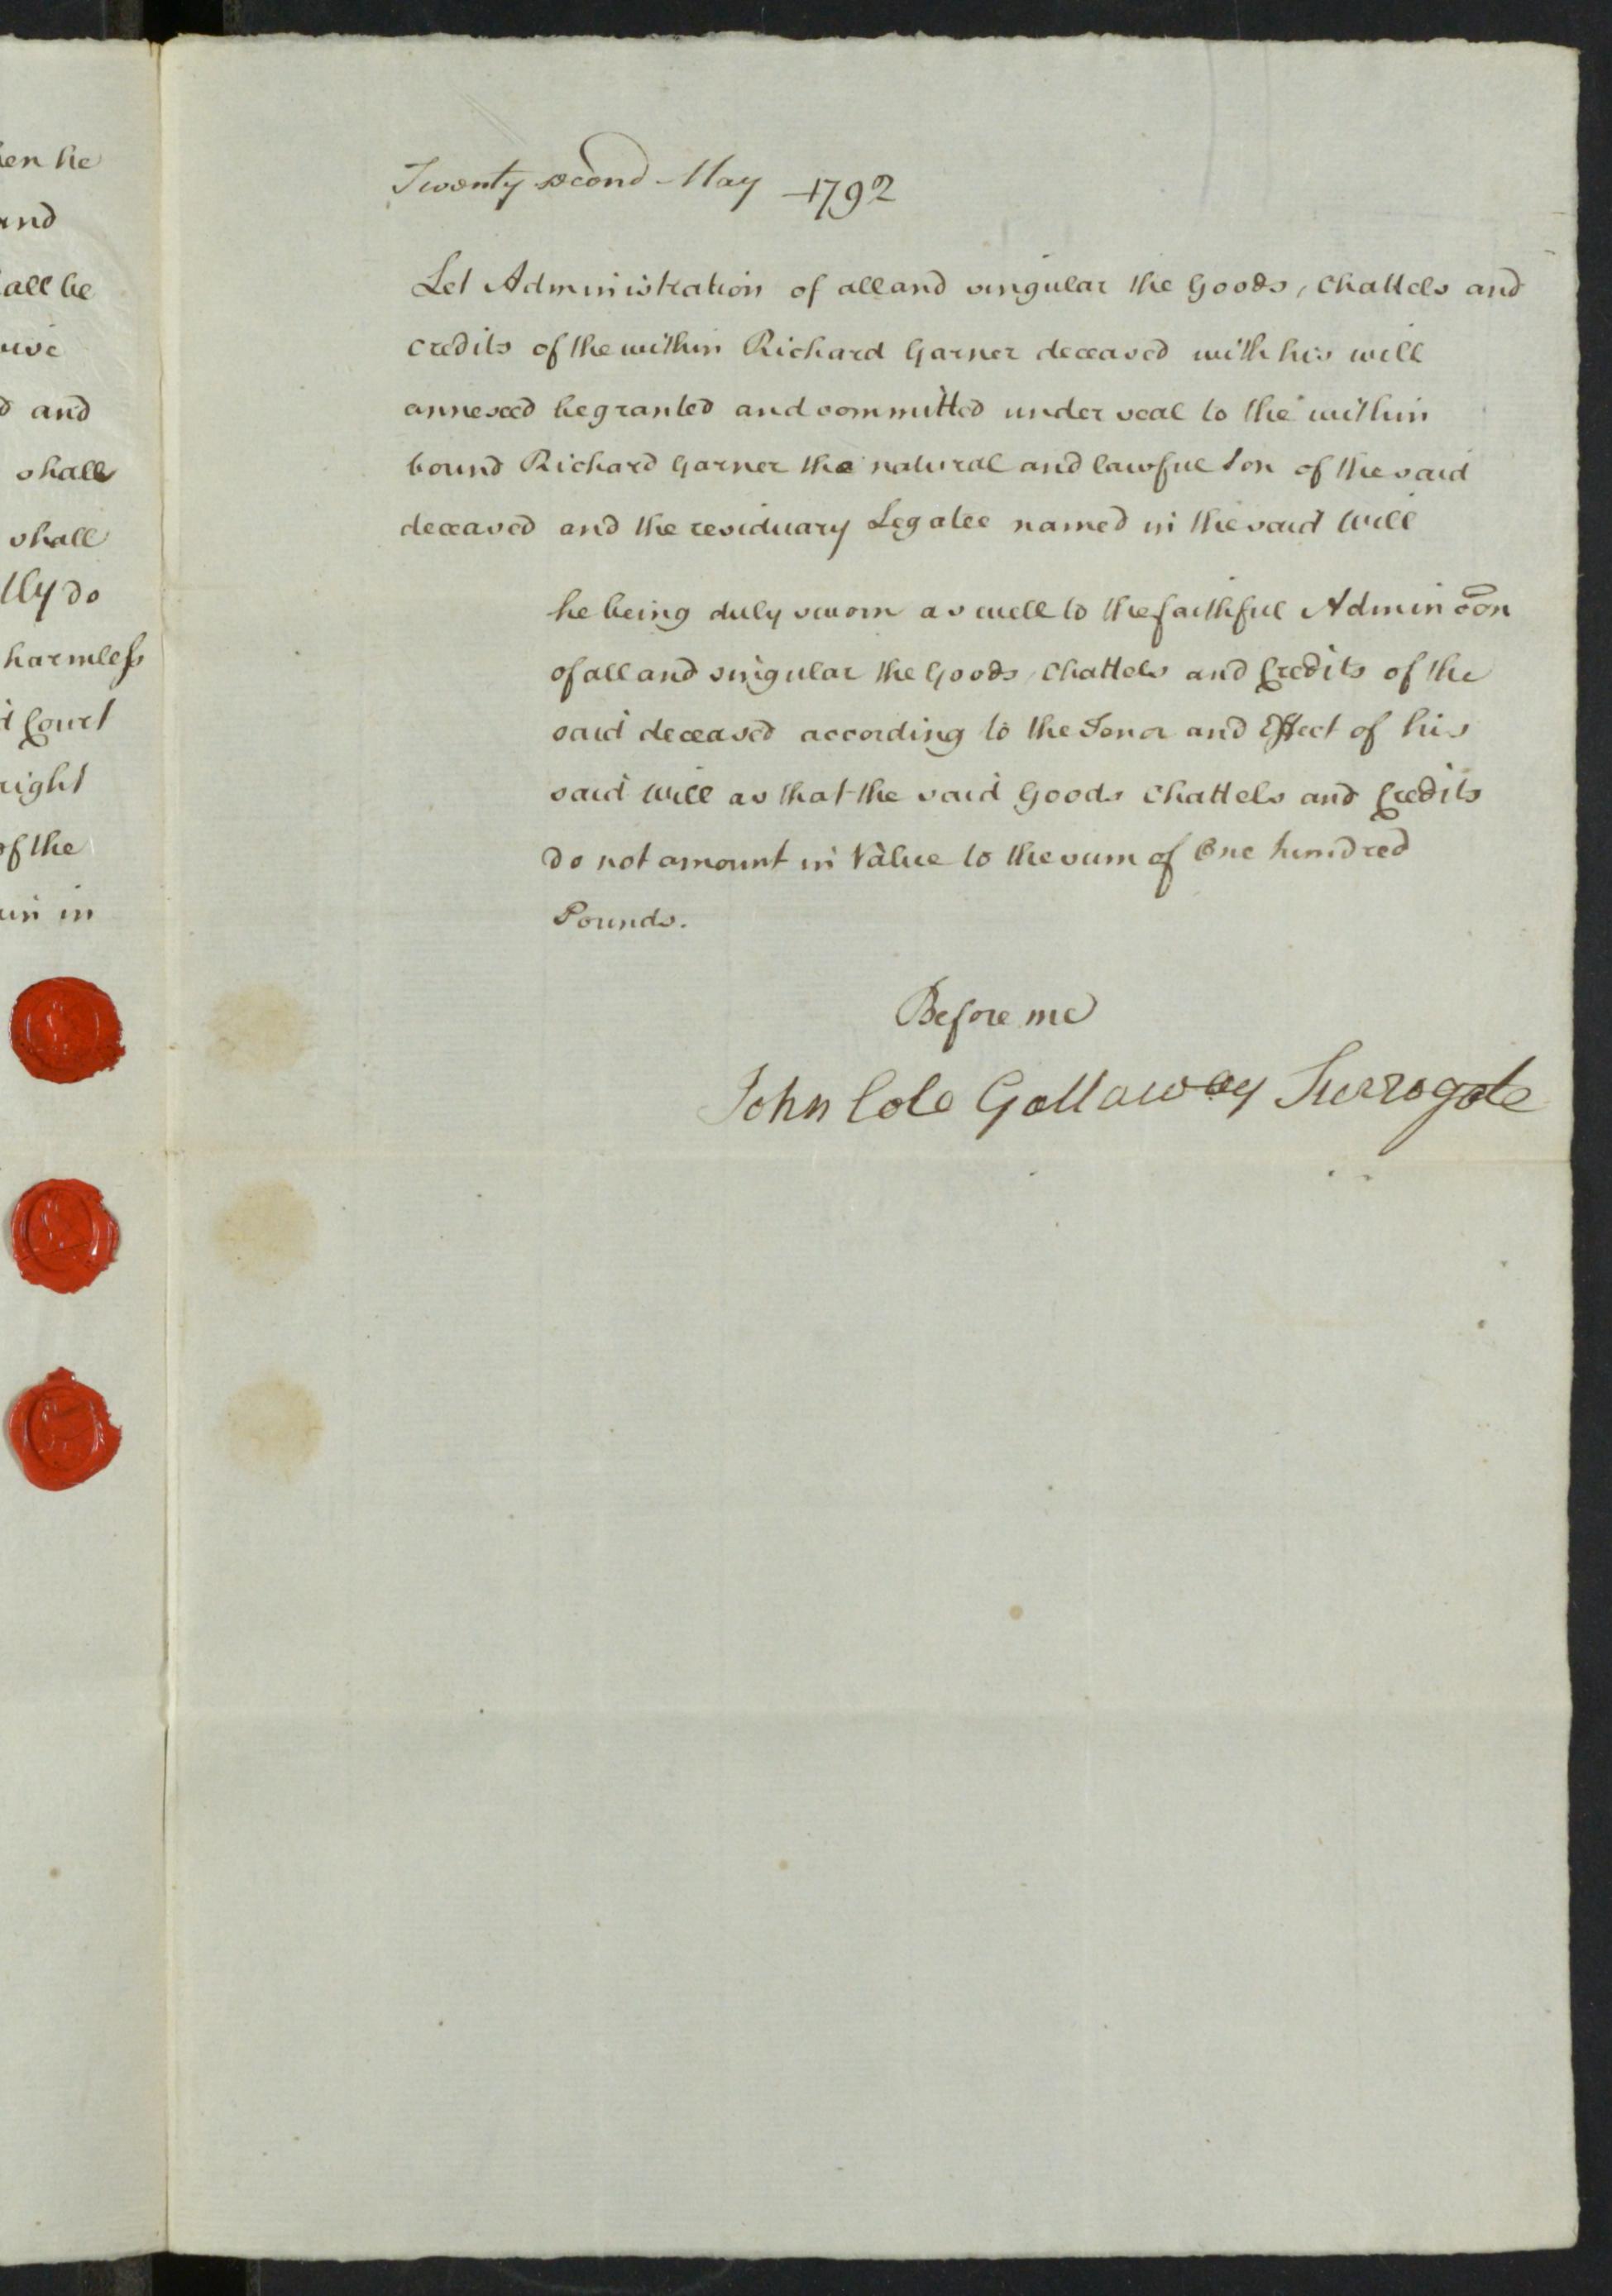 en he
and
all be
wise
d and
shall
shall
lly do
harmless
d Court
right
of the
in in
Twenty second May 1792
Let Administration of all and singular the Goods, Chattels and
credits of the within Richard Garner deceased with his will
annexed be granted and committed under seal to the within
bound Richard Garner the natural and lawful Son of the said
deceased and the residuary Legatee named in the said Will
he being duly sworn as well to the faithful Adminōon
of all and singular the Goods, Chattels and Credits of the
said deceased according to the Tenor and Effect of his
said Will as that the said Goods Chattels and Credits
do not amount in Value to the sum of One hundred
Pounds.
Before me
John Cole Gallaway Surrogate